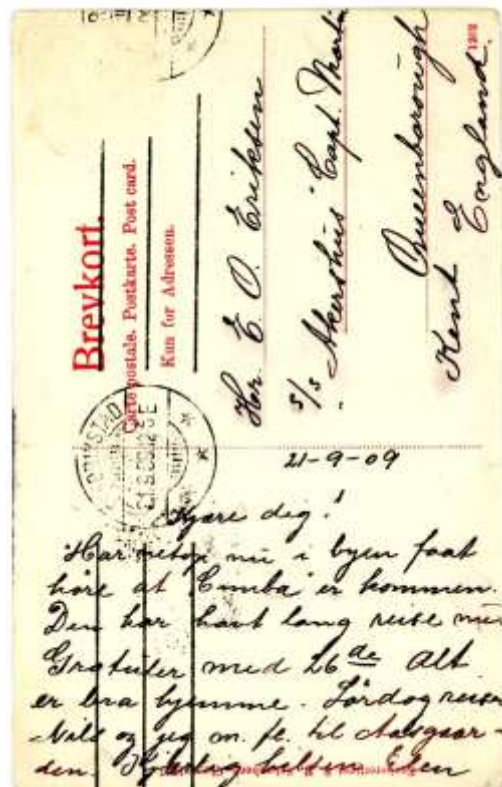 Brevkort.
Carte postale. Postkarte. Post card.
Kun for Adressen.
Hr. E. O. Eriksen
s/s "Akershus" Capt.
Queenborough
Kent England.
1202
21-9-09
Kjære deg!
Har netop nu i byen faat
høre at "Cimba" er kommen.
Den har havt lang reise
Gratuler med 26de Alt
er bra hjemme. Lørdag reiser
Nils og jeg m. fl. til Aasgaar-
den. Kjærlig hilsen Elen